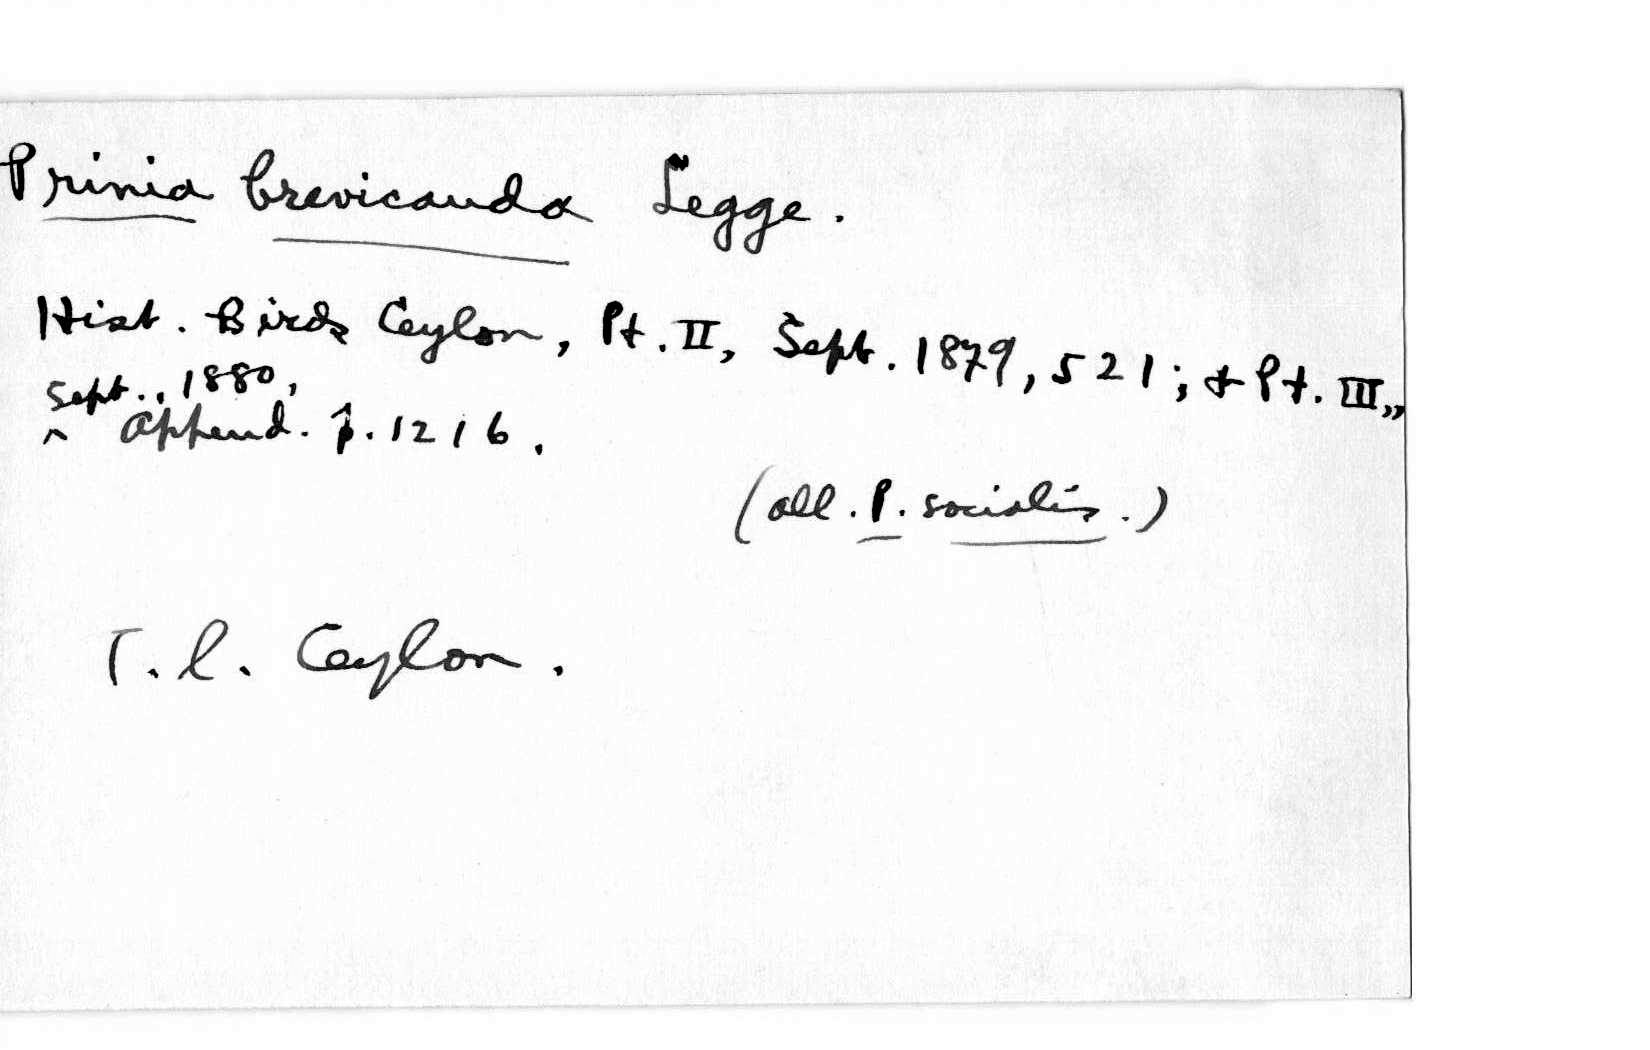 Prinia brevicauda Legge.
Hist. Birds Ceylon, Pt. II, Sept. 1879, 521; & Pt. III,,
Sept., 1880,
^ Append. p. 1216.
(all. P. socialis.)
T. l. Ceylon.